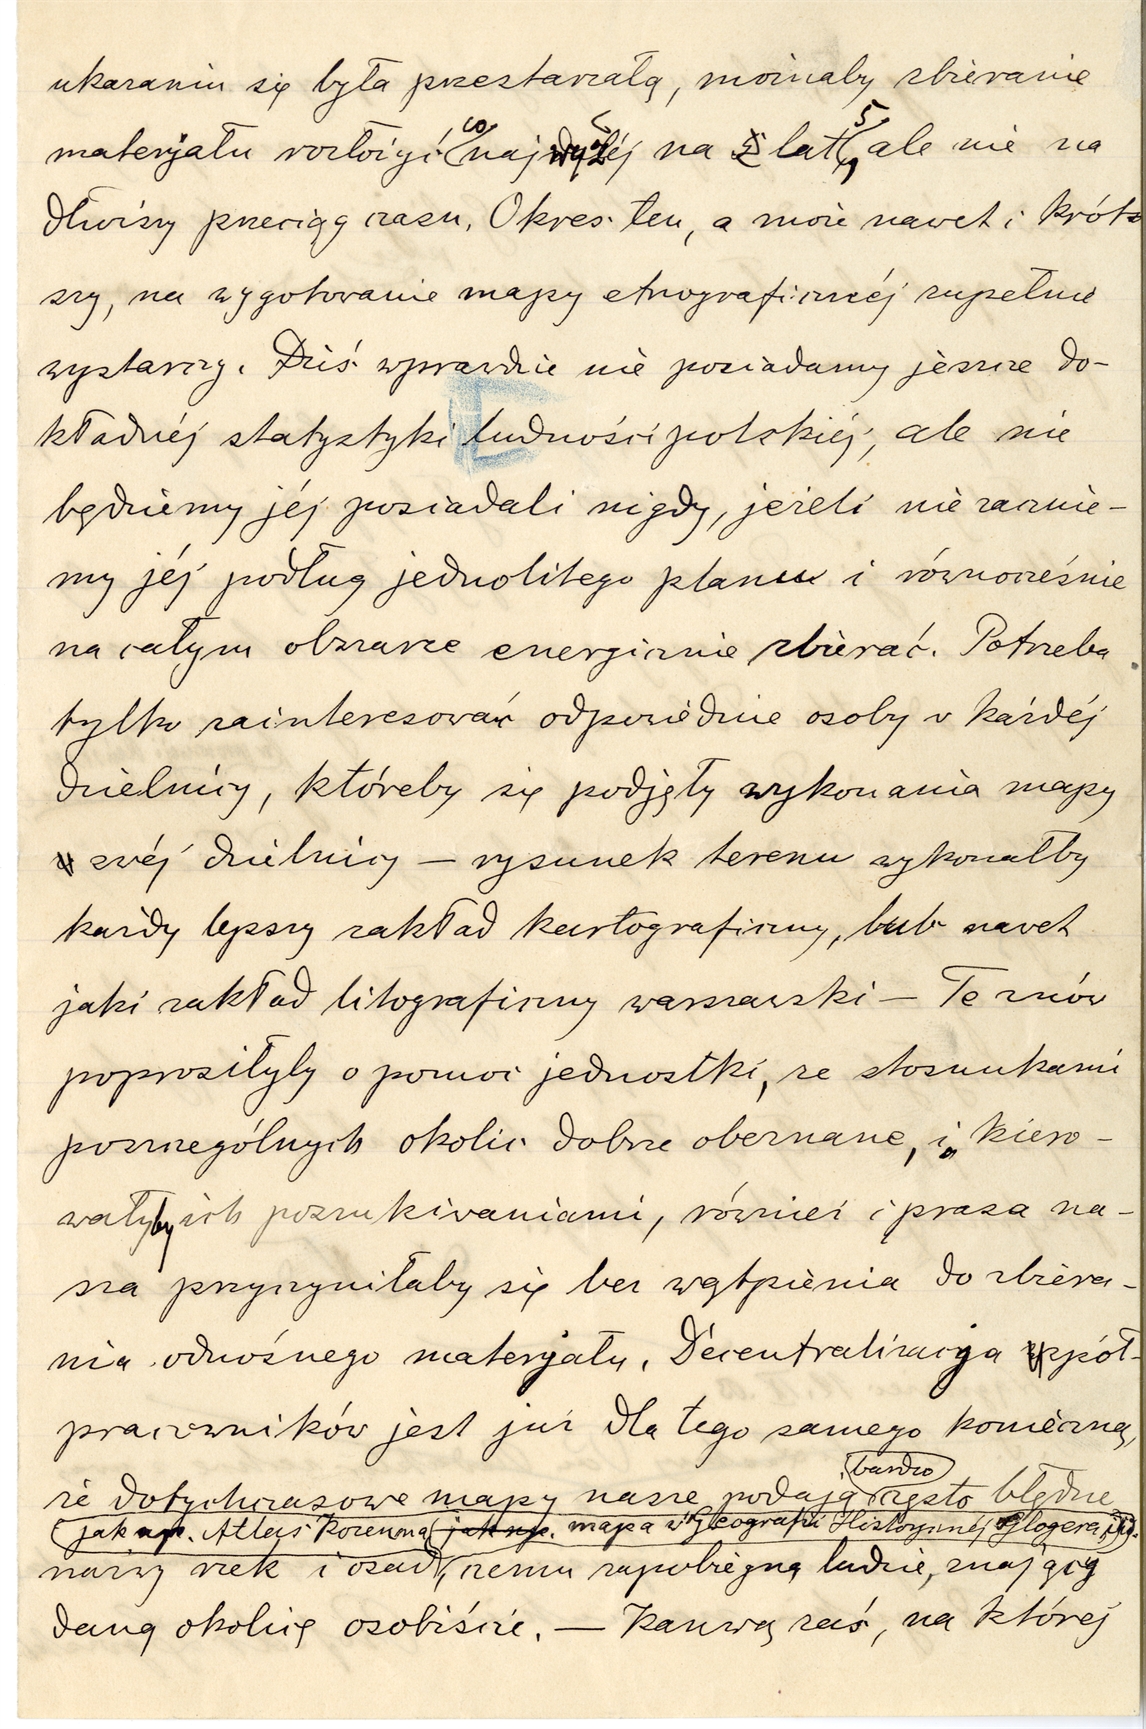 ukazaniu się była przestarzałą, możnaby zbieranie
materjału rozłożyć co najwyżéj na 5 lat, ale nie na
dłuższy przeciąg czasu. Okres ten, a może nawet i krót-
szy, na wygotowanie mapy etnograficznéj zupełnie
wystarczy. Dziś wprawdzie nie posiadamy jeszcze do-
kładnéj statystyki ludności polskiéj, ale nie
będziemy jéj posiadali nigdy, jeżeli nie zacznie-
my jéj podług jednolitego planu i równocześnie
na całym obszarze energicznie zbierać. Potrzeba
tylko zainteresować odpowiednie osoby w każdéj
dzielnicy, któreby się podjęły wykonania mapy
swéj dzielnicy — rysunek terenu wykonałby
każdy lepszy zakład kartograficzny, lub nawet
jaki zakład litograficzny warszawski — Te znów
poprosiłyby o pomoc jednostki, ze stosunkami
poszczególnych okolic dobrze obeznane, i kiero-
wałyby ich poszukiwaniami, również i prasa na-
sza przyczyniłaby się bez wątpienia do zbiera-
nia odnośnego materjału. Decentralizacja współ-
pracowników jest już dla tego samego konieczną,
że dotychczasowe mapy nasze podają bardzo często błędne
jak np. Atlas Korzenna jak np. mapa w Geografii Historycznéj Glogera
nazwy rzek i osad, czemu zapobiegną ludzie, znający
daną okolicę osobiście. — Kanwą zaś, na której